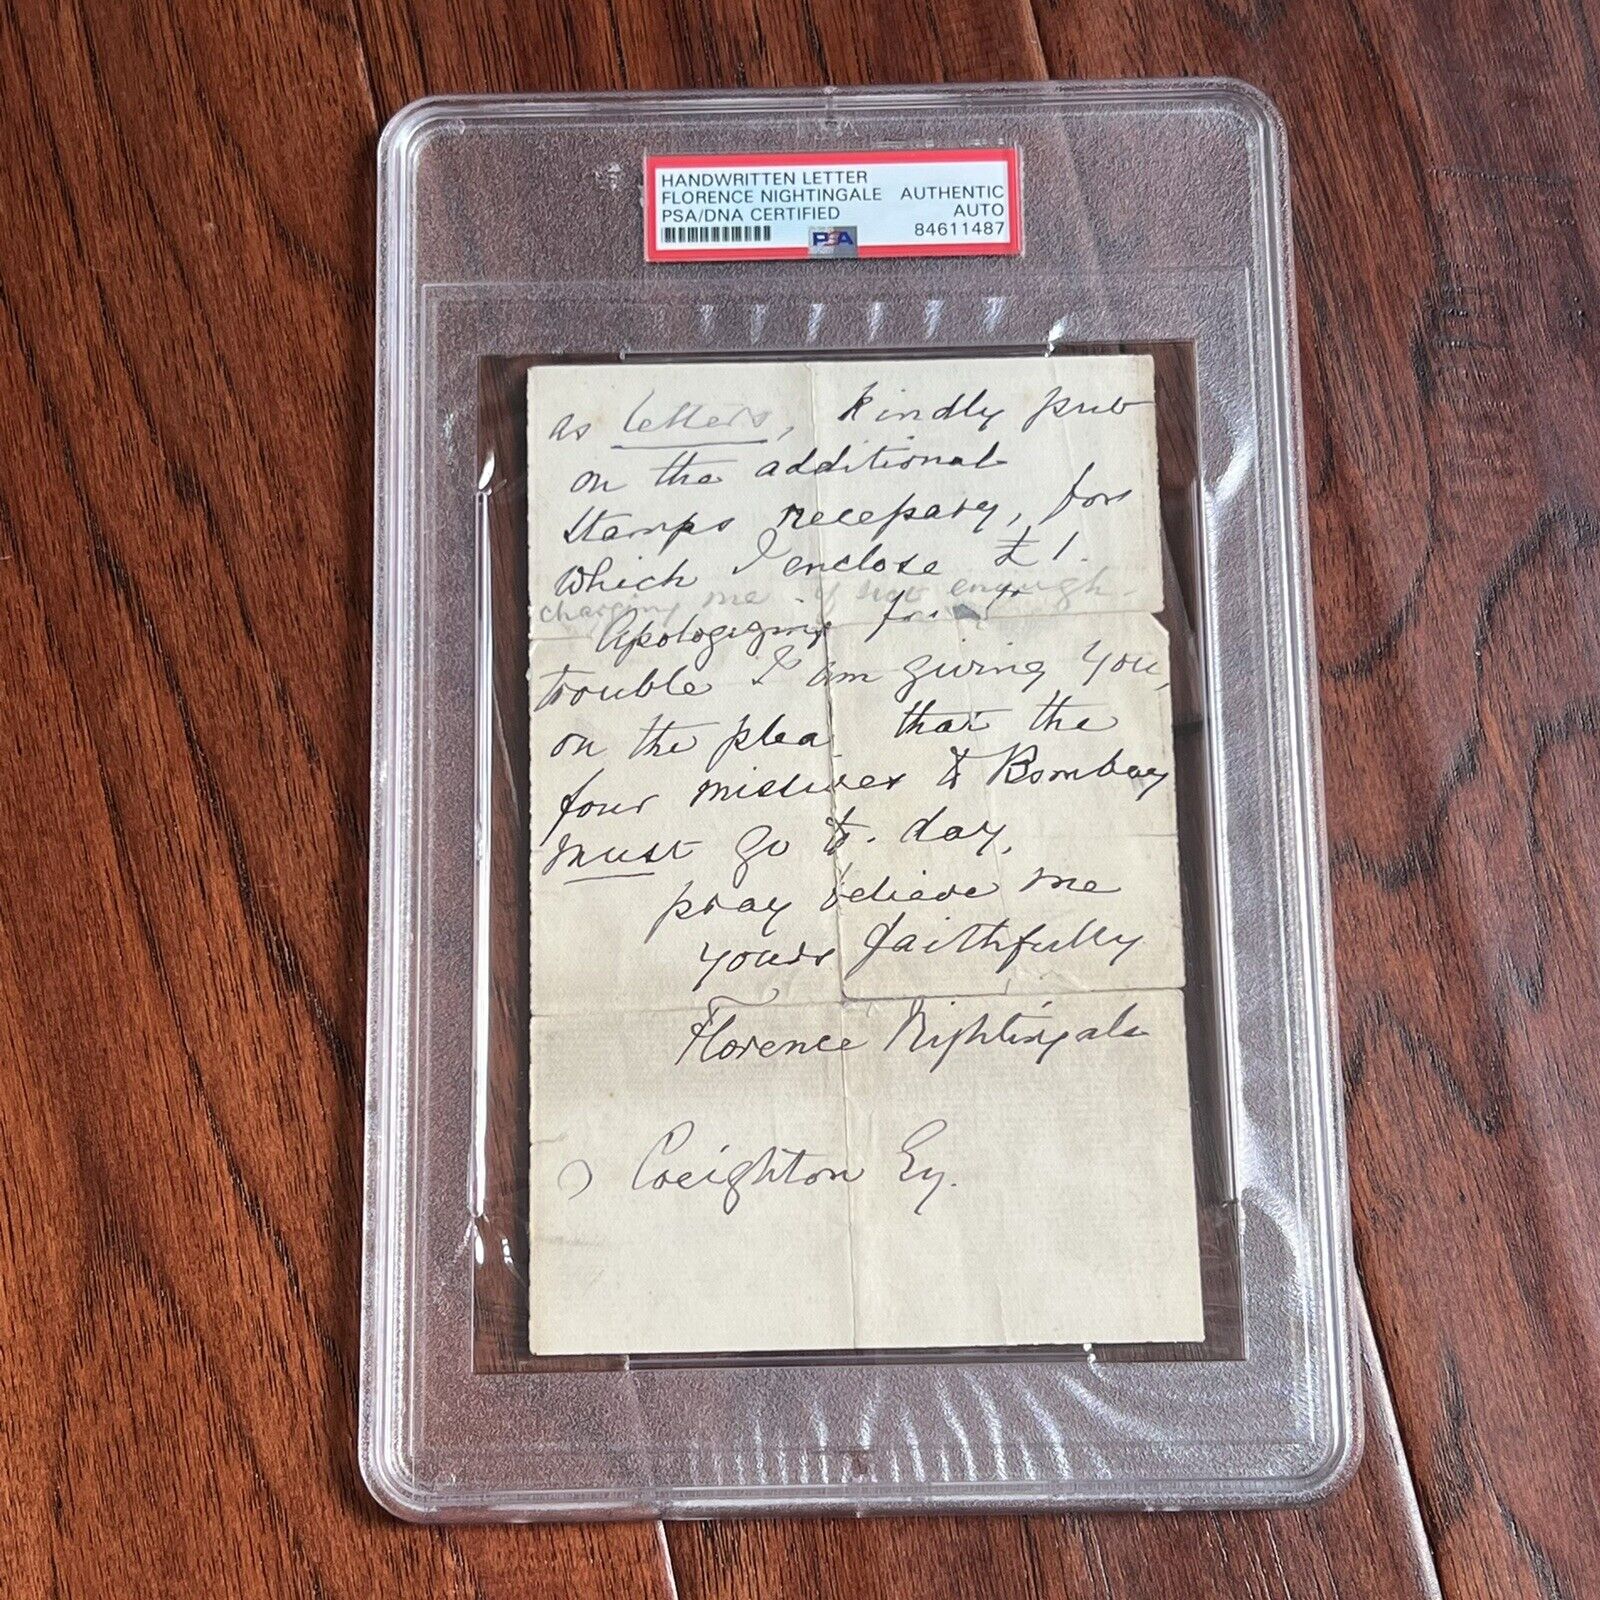 HANDWRITTEN LETTER
FLORENCE NIGHTINGALE AUTHENTIC
PSA/DNA CERTIFIED AUTO
PSA 84611487
as letters, kindly put
on the additional
stamps necessary, for
which I enclose £1.
charging me if not enough.
Apologizing for
trouble I am giving you,
on the plea that the
four missives to Bombay
must go to-day,
pray believe me
yours faithfully
Florence Nightingale
Creighton Esq.